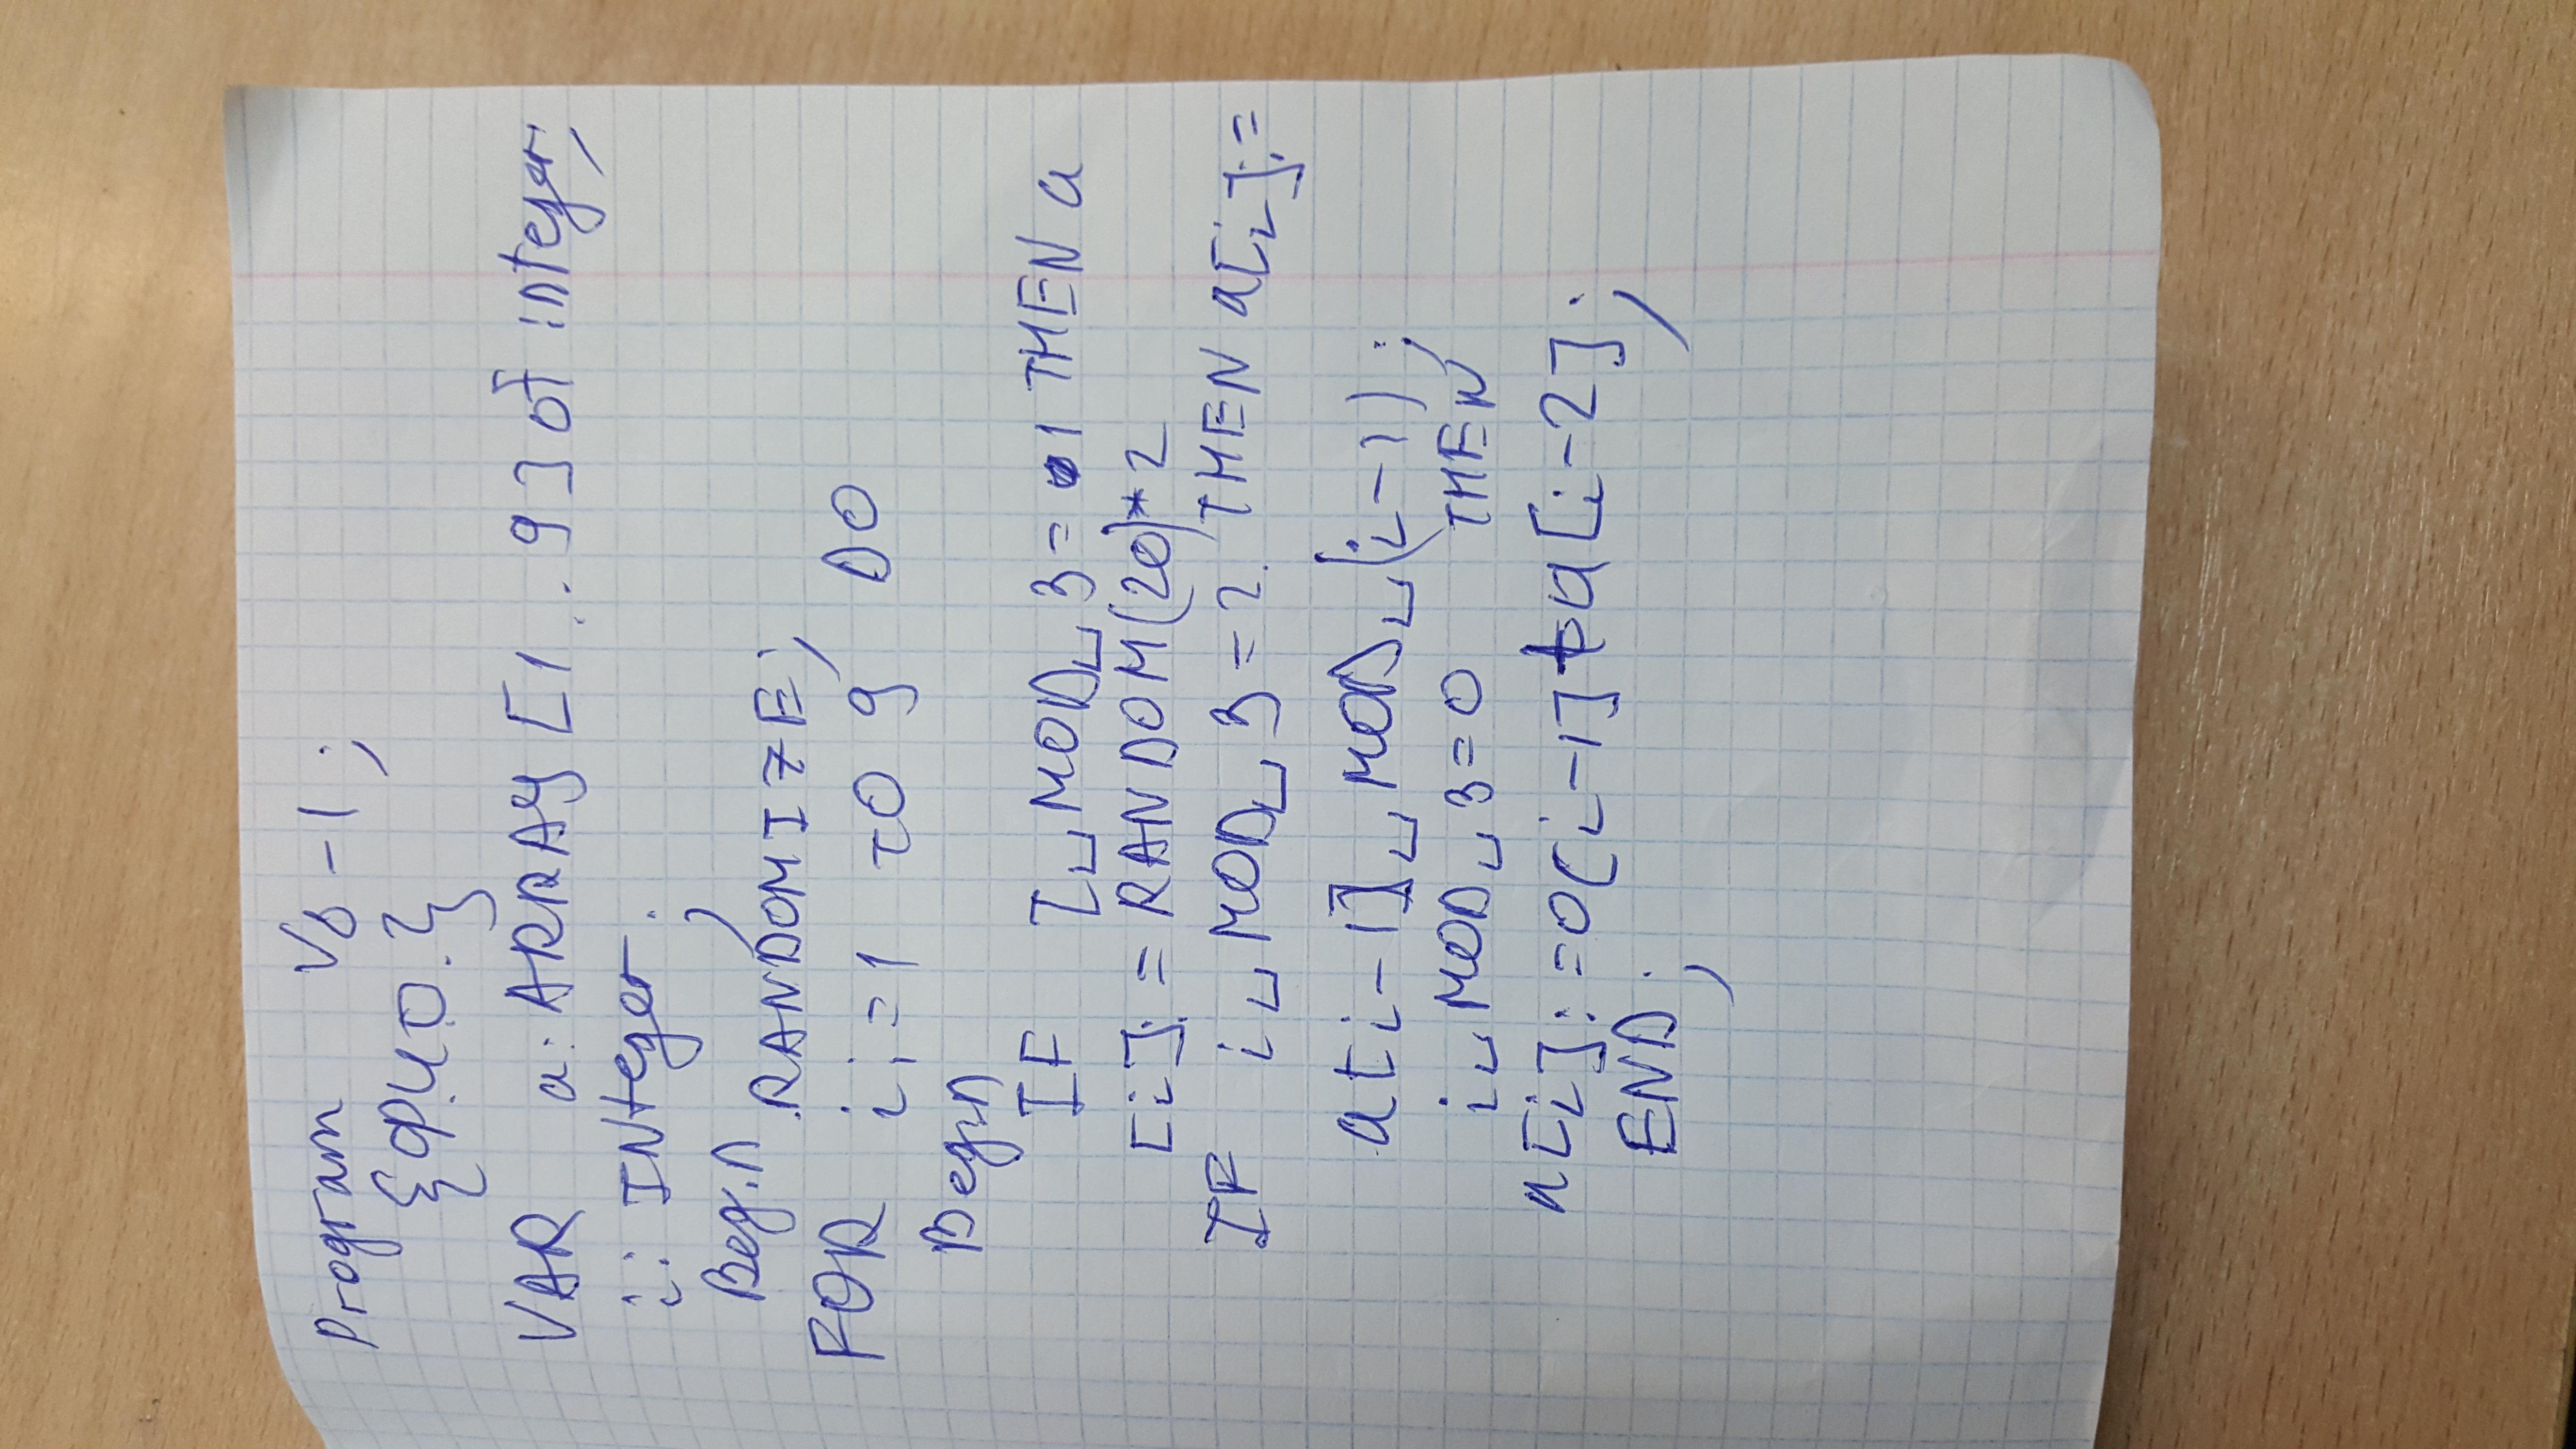 Program V8-1;
{Ф.И.О.}
VAR a: ARRAY [1..9] of integer;
i: INteger;
Begin RANDOMIZE;
FOR i:=1 TO 9 DO
Begin
IF I␣MOD␣3=1 THEN a
[i]:=RANDOM(20)*2
IF i␣MOD␣3=2 THEN a[i]:=
a[i-1]␣MOD␣(i-1);
i␣MOD␣3=0 THEN
a[i]:=a[i-1]+a[i-2];
END;